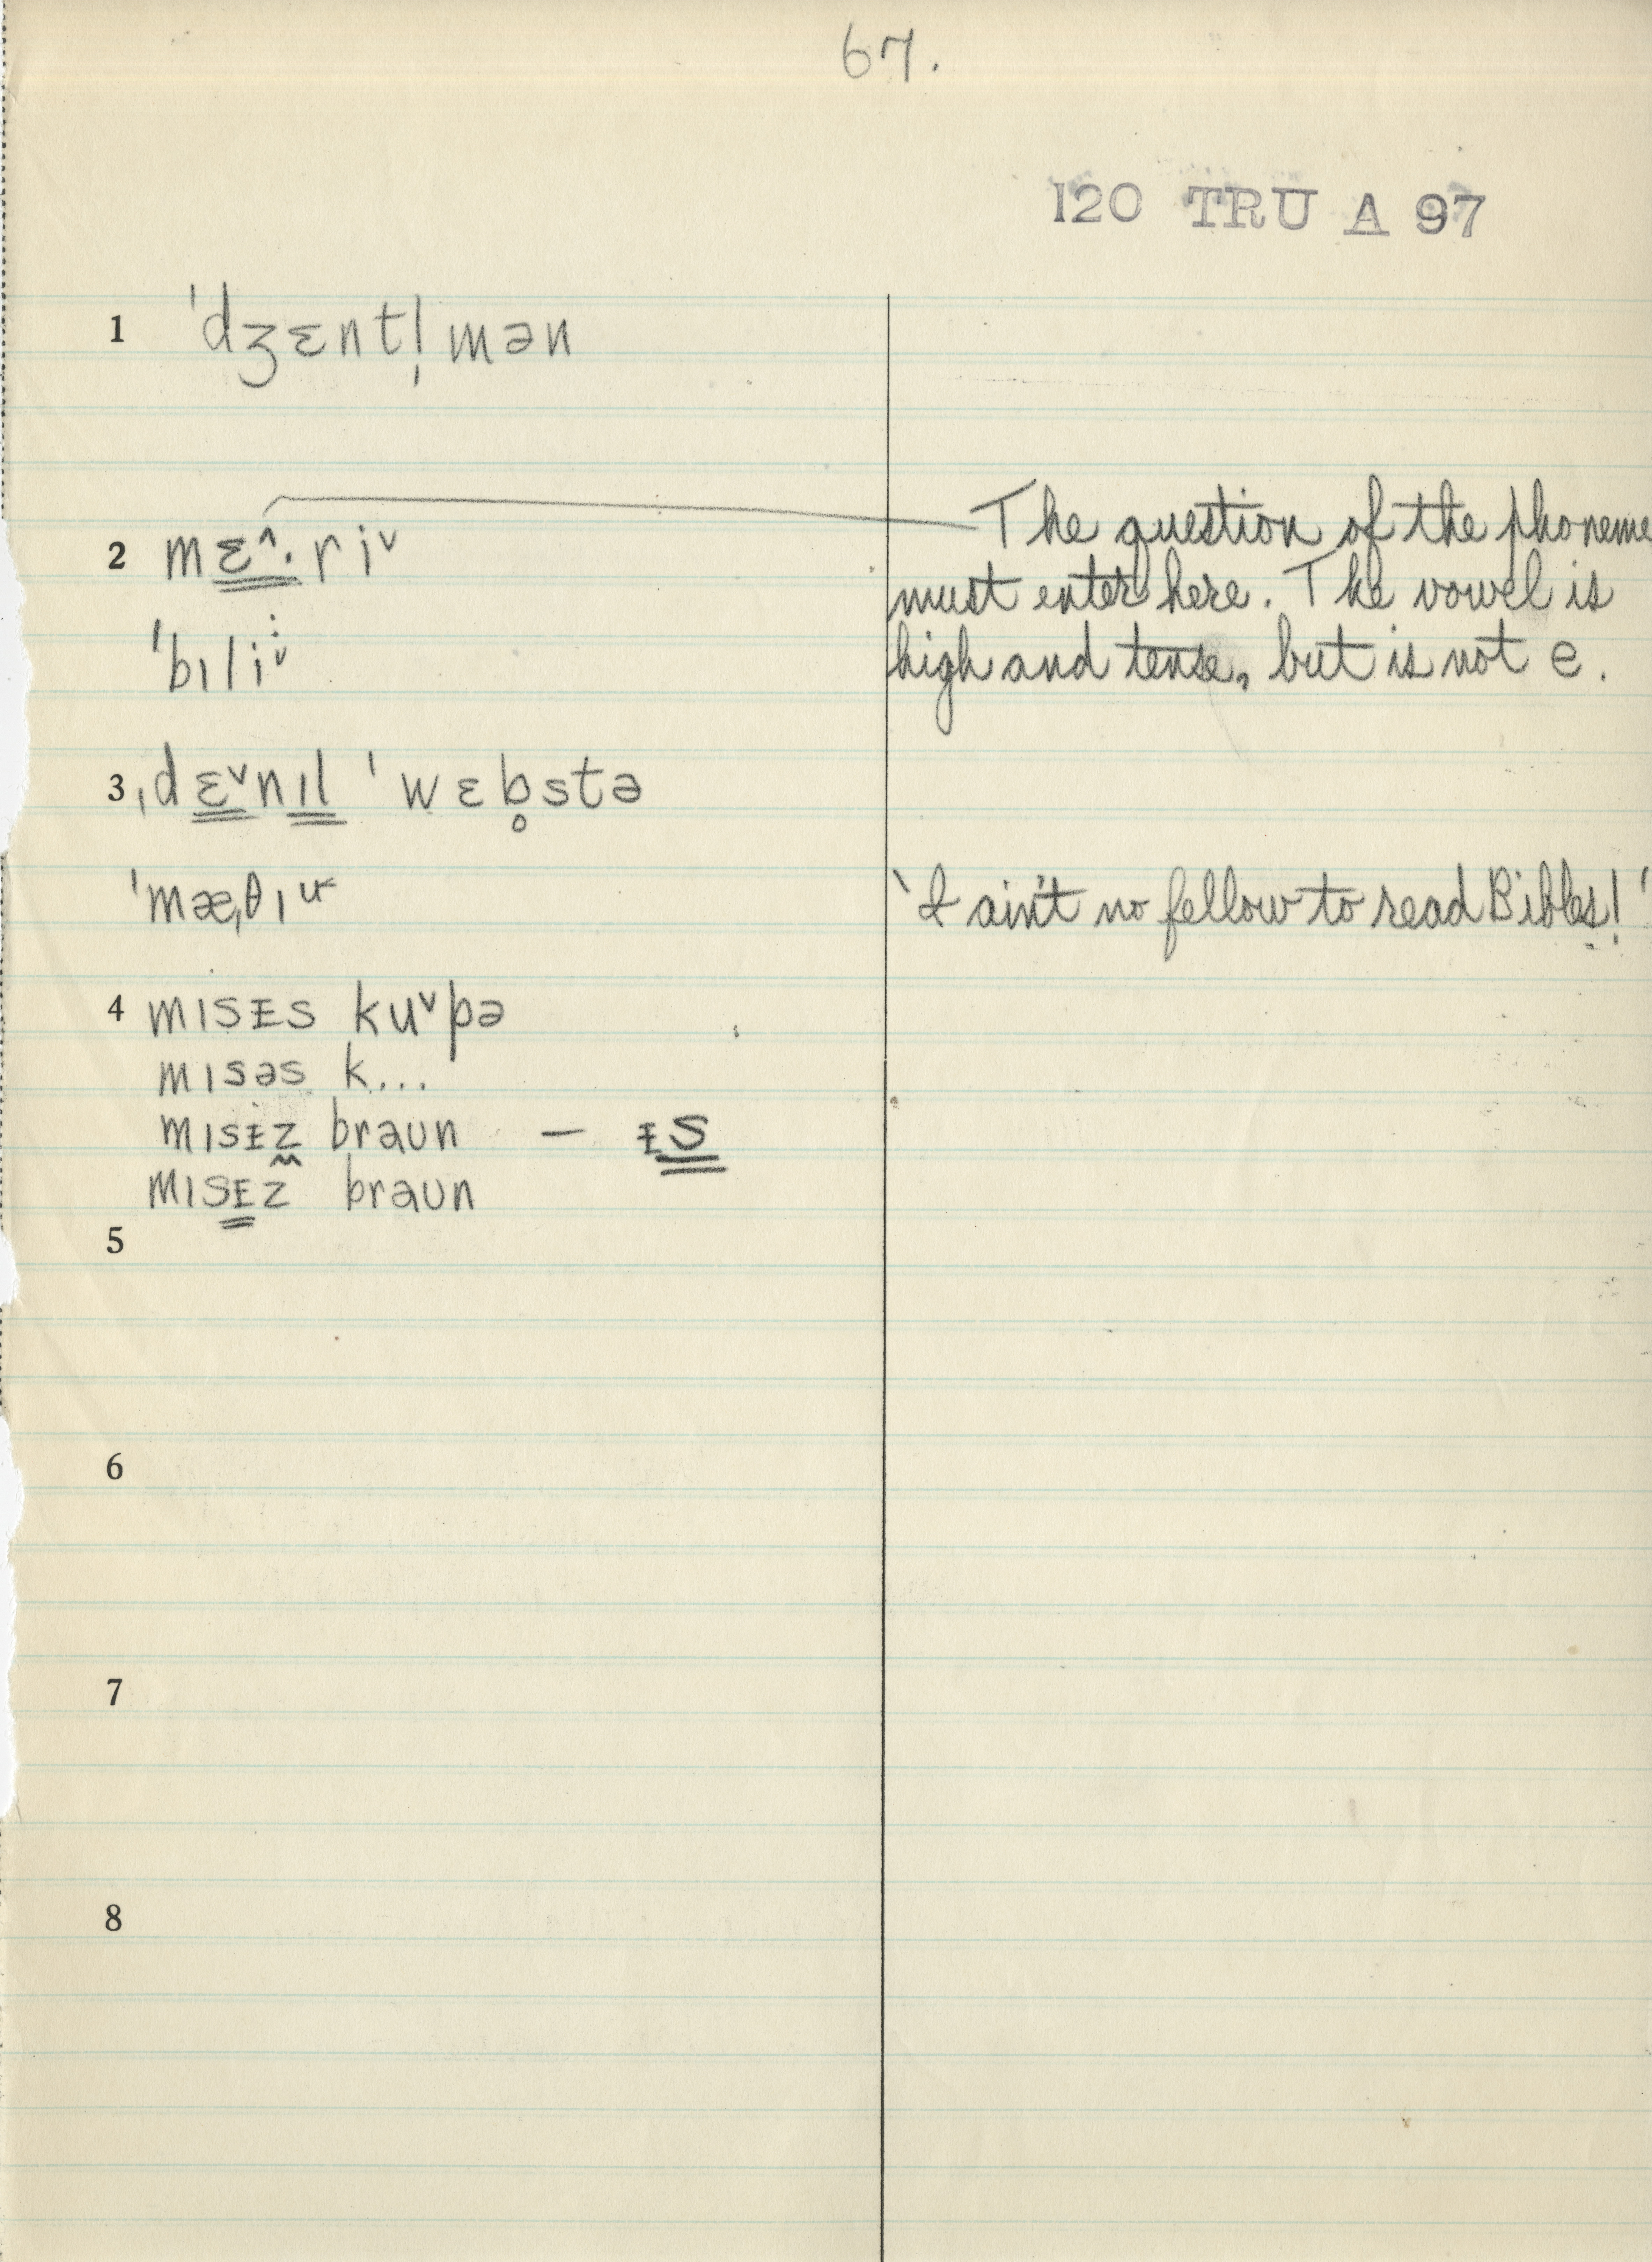 67.
120 TRU A 97
1 ˈdʒɛntl̩mən
2 mɛ^·ri˅
The question of the phoneme
must enter here. The vowel is
ˈbɪli˅
high and tense, but is not e.
3 ˌdɛ˅nɪl ˈwɛb̥stə
ˈmæˌθɪu
'I ain't no fellow to read Bibles!'
4 mɪsᵻs ku˅pə
mɪsəs k...
mɪsᵻz̬ braun — ᵻs
mɪsᴇz braun
5
6
7
8